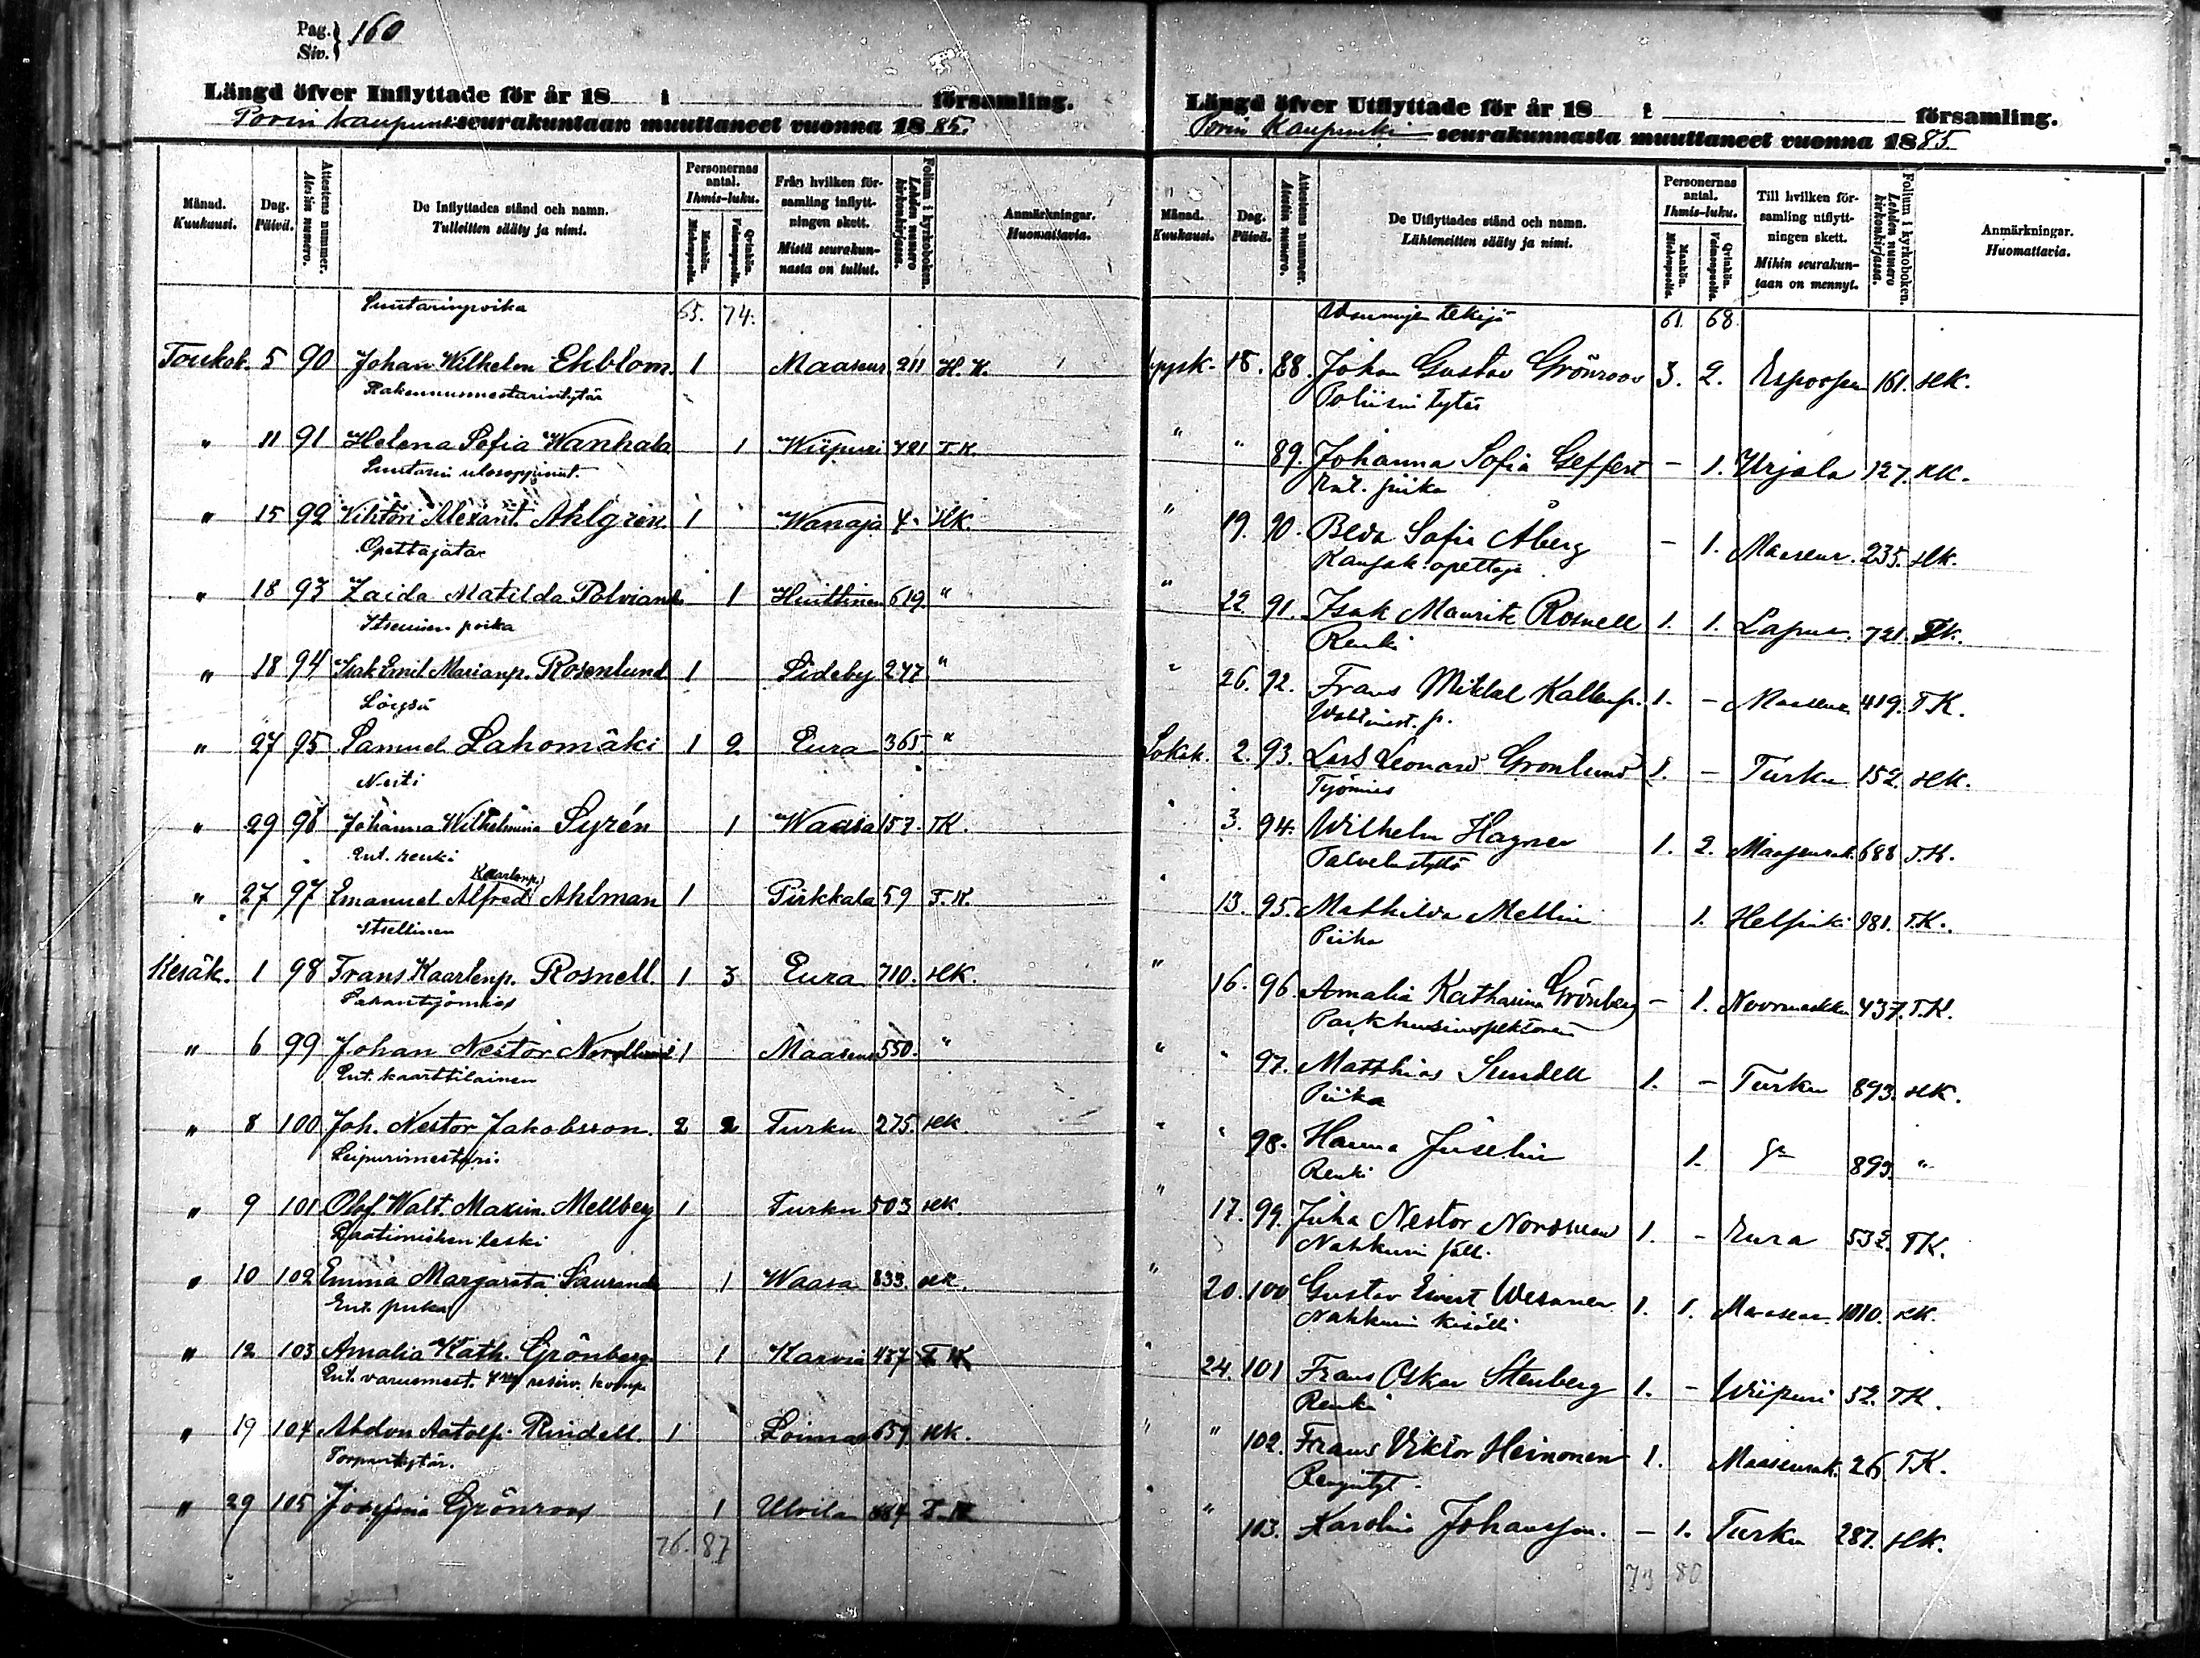 Pag. } 160
Siv. }
Längd öfver Inflyttade för år 18 i församling.
Porin Kaupunki seurakuntaan muuttaneet vuonna 1885.
Månad. Kuukausi. Dag. Päivä. Attestens nummer. Atestin numero. De Inflyttades stånd och namn. Tulleitten sääty ja nimi. Personernas antal. Ihmis-luku. Mankön. Miehenpuolia. Qvinkön. Vaimonpuolia. Från hvilken församling inflyttningen skett. Mistä seurakunnasta on tullut. Folium i kyrkoboken. Lehden numero kirkonkirjassa. Anmärkningar. Huomattavia.
Suutarinpoika 65. 74.
Toukok. 5 90 Johan Wilhelm Ekblom. 1 Maaseur. 211 H. K.
Rakennusmestarintytär
" 11 91 Helena Sofia Wanhala 1 Wiipuri 421 T.K.
Suutarin ulosoppinut.
" 15 92 Vihtori Alexant. Ahlgrén 1 Wanaja 4. HK.
Opettajatar
" 18 93 Zaida Matilda Polviander 1 Huittinen 619. "
Itsellisen poika
" 18 94 Isak Emil Marianp. Rosenlund 1 Sideby 247. "
" 27 95 Samuel Lahomäki 1 2 Eura 365. "
Neiti
" 29 96 Johanna Wilhelmina Syrén 1 Waasa 157. TK.
Ent. renki
" 27 97 Emanuel Alfred Kaarlenp. Ahlman 1 Pirkkala 59 T.K.
Itsellinen
Kesäk. 1 98 Frans Kaarlenp. Rosnell. 1 3 Eura 710. HK.
Sahantyömies
" 6 99 Johan Nestor Nordlund 1 Maaseur 550. "
Ent. kaarttilainen
" 8 100 Joh. Nestor Jakobsson. 2 2 Turku 275. HK
Leipurimestari
" 9 101 Olof Walt. Maxim. Mellberg 1 Turku 503 HK.
Raatimiehen leski
" 10 102 Emma Margareta Saurander 1 Waasa 833. HK.
Ent. piika
" 12 103 Amalia Kath. Grönberg 1 Karvia 437 T K
Ent. varusmest. 4 reserv. komp.
" 19 104 Abdon Aatolfi Rindell. 1 Loimaa 659 HK.
Torparintytär.
" 29 105 Josefina Grönroos 1 Ulvila 884 T. K
76. 87
Längd öfver Utflyttade för år 18 i församling.
Porin Kaupunki seurakunnasta muuttaneet vuonna 1885.
Månad. Kuukausi. Dag. Päivä. Attestens nummer. Atestin numero. De Utflyttades stånd och namn. Lähteneitten sääty ja nimi. Personernas antal. Ihmis-luku. Mankön. Miehenpuolia. Qvinkön. Vaimonpuolia. Till hvilken församling utflyttningen skett. Mihin seurakuntaan on mennyt. Folium i kyrkoboken. Lehden numero kirkonkirjassa. Anmärkningar. Huomattavia.
tekijä 61. 68.
18. 88. Johan Gustav Grönroos 3. 2. 161. HK.
Poliisin tytär
" " 89. Johanna Sofia Geffert - 1. Urjala 127. HK.
Ent. piika
" 19. 90. Beda Sofia Åberg - 1. Maaseur. 235. HK.
Kansak. opettaja
" 22. 91. Isak Maurits Rosnell 1. 1. Lapua. 721. TK.
Renki
" 26. 92. Frans Mikkel Kallenp. 1. - Maaseur. 419. T.K.
Lokak. 2. 93. Lars Leonard Gronlund 1. - Turku 152. HK.
Työmies
" 3. 94. Wilhelm Hagner 1. 2. Maaseurak. 688 T.K.
Palvelustyttö
" 13. 95. Mathilda Mellin 1. Helsinki 981. T.K.
Piika
" 16. 96. Amalia Katharina Grönberg - 1. Noormarkku 437. T.K.
Packhusinspektoren
" " 97. Matthias Sundell 1. - Turku 893. HK.
Piika
" " 98. Hanna Juselin 1. 893. "
Renki
" 17. 99. Juha Nestor Nordman 1. - Eura 532. TK.
Nahkurin
" 20. 100 Gustav Evert Wesaner 1. 1. Maaseur. 1010. HK.
Nahkurin kisälli
" 24. 101 Frans Oskar Stenberg 1. - Wiipuri 52. TK.
Renki
" " 102. Frans Viktor Heinonen 1. Maaseurak. 26. TK.
Rengintyt.
" 103. Karolin Johansson. - 1. Turku 287. HK.
73 80